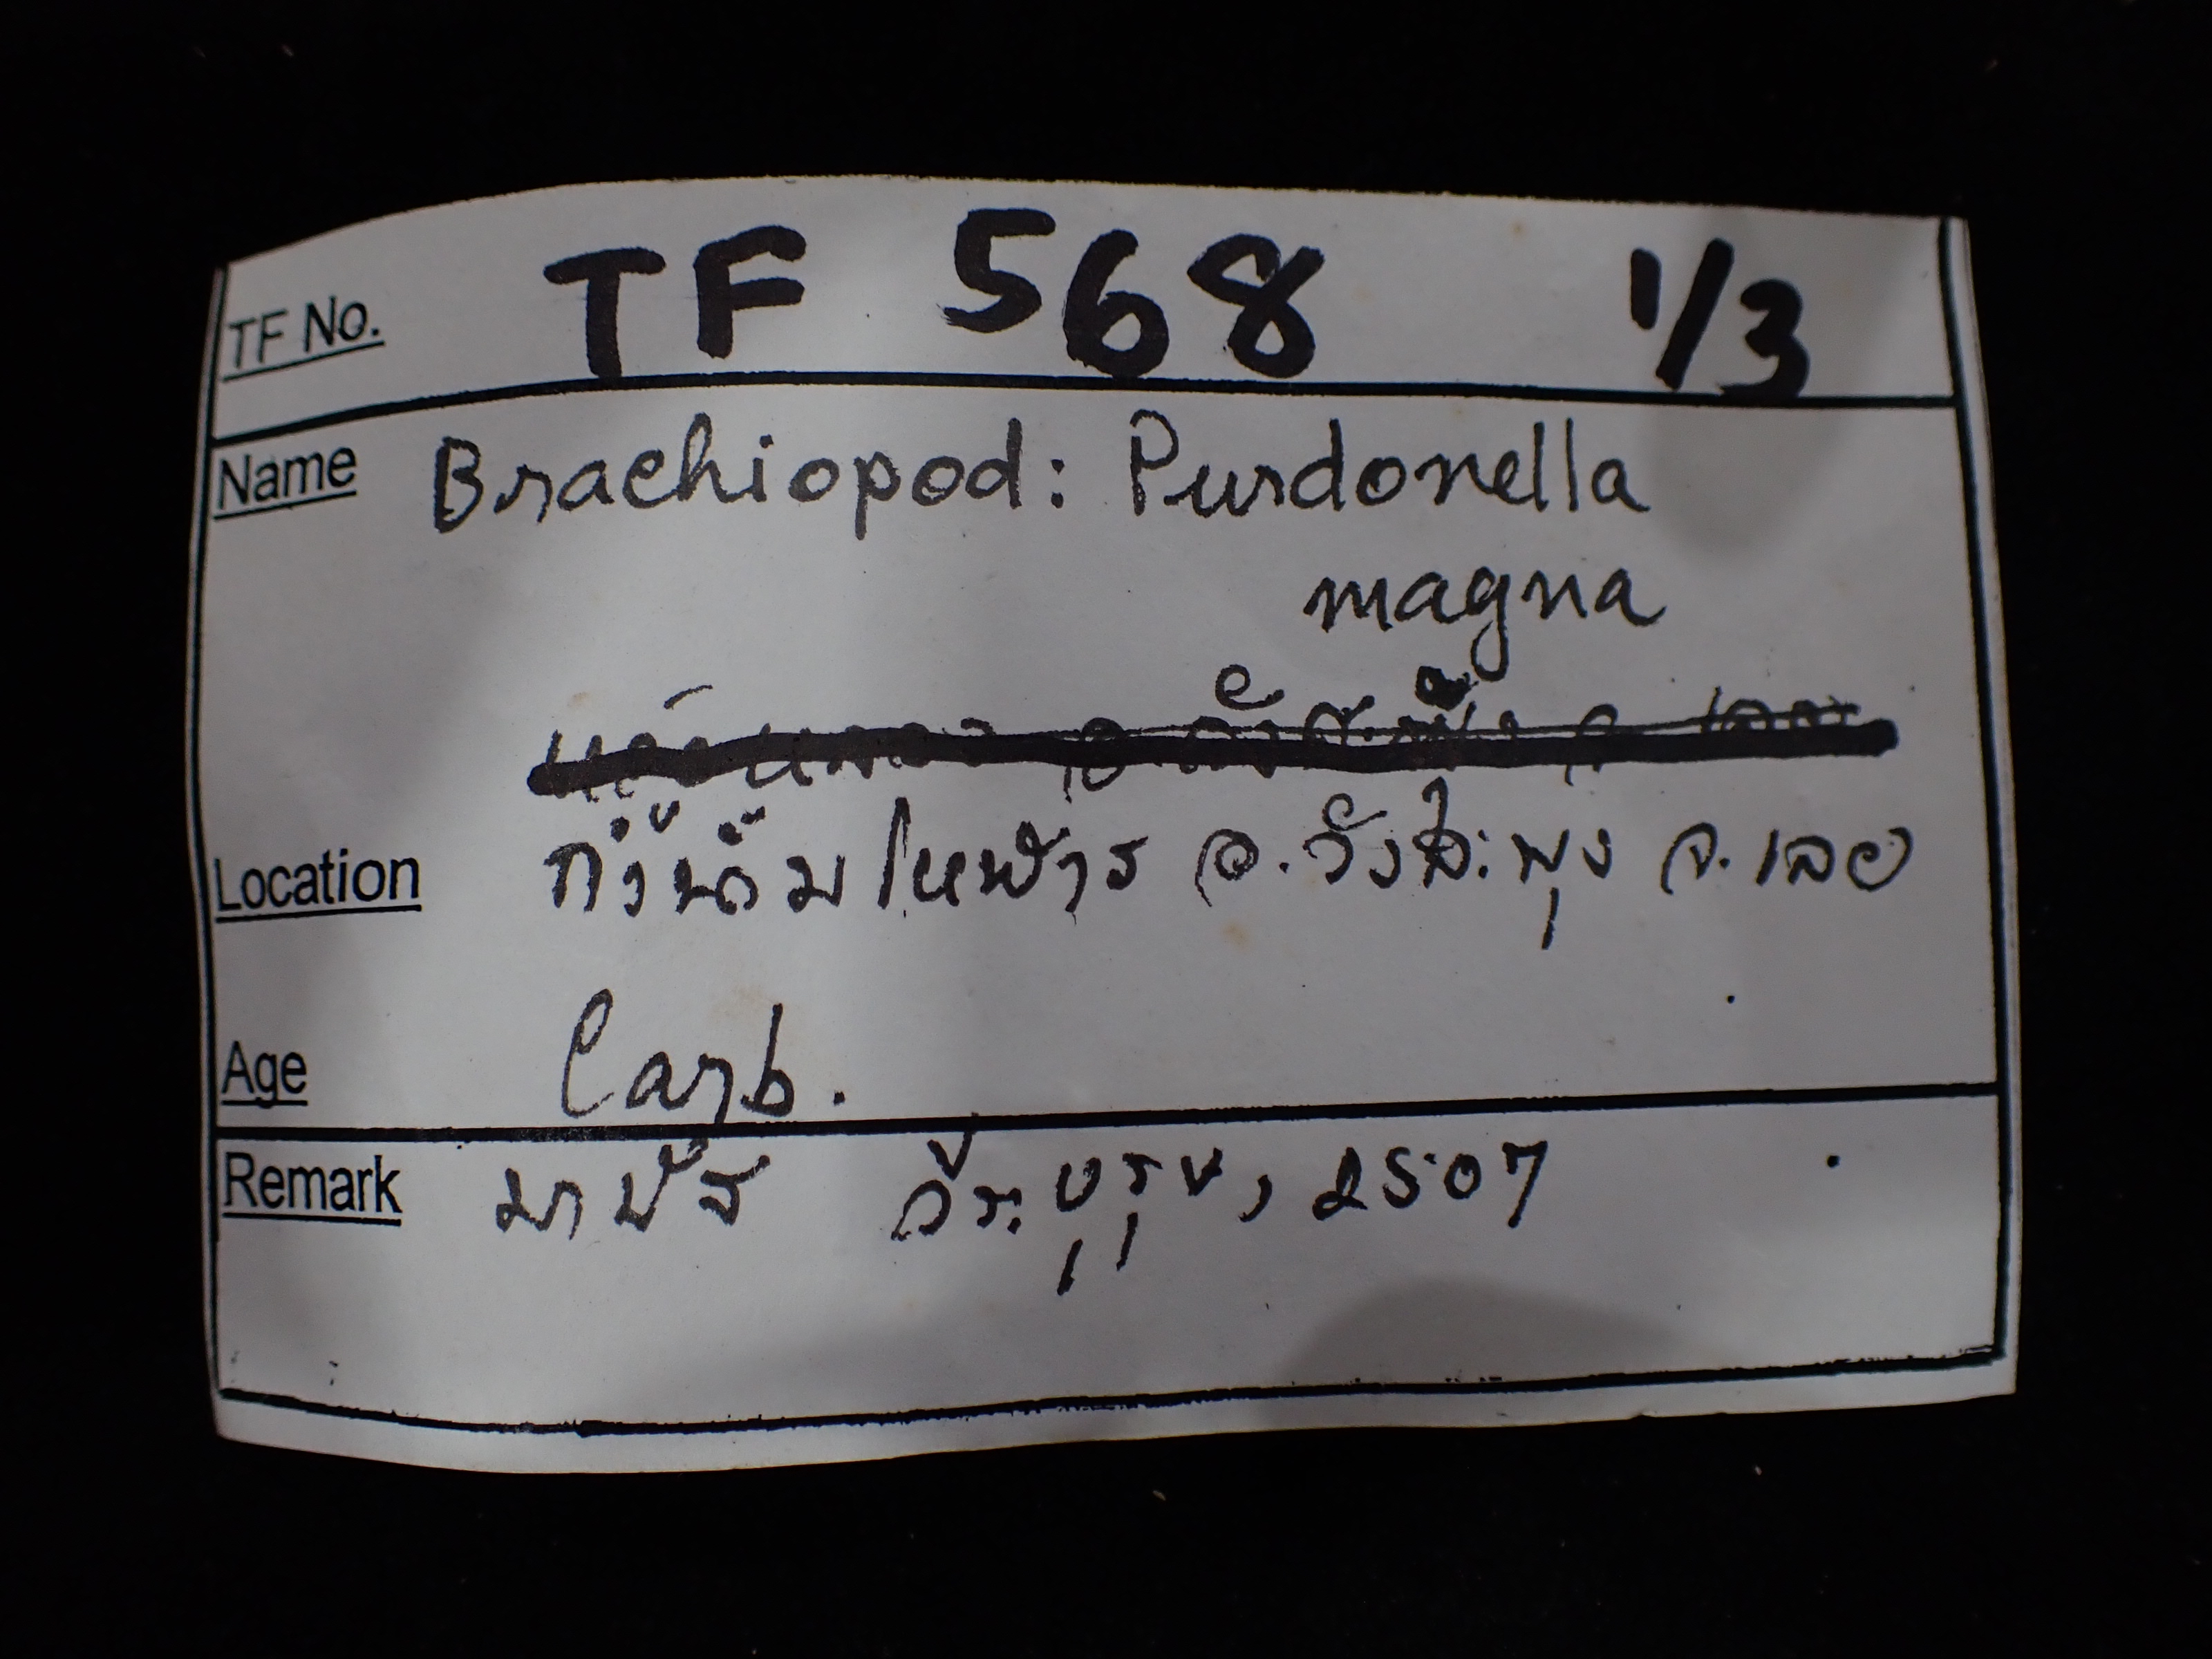 TF No. TF 568 1/3
Name Brachiopod: Purdonella
magna
อ.วังสะพุง จ.เลย
Location ถ้ำน้ำมโหฬาร อ.วังสะพุง จ.เลย
Age Carb.
Remark มานัส วีระบุรุษ, 2507